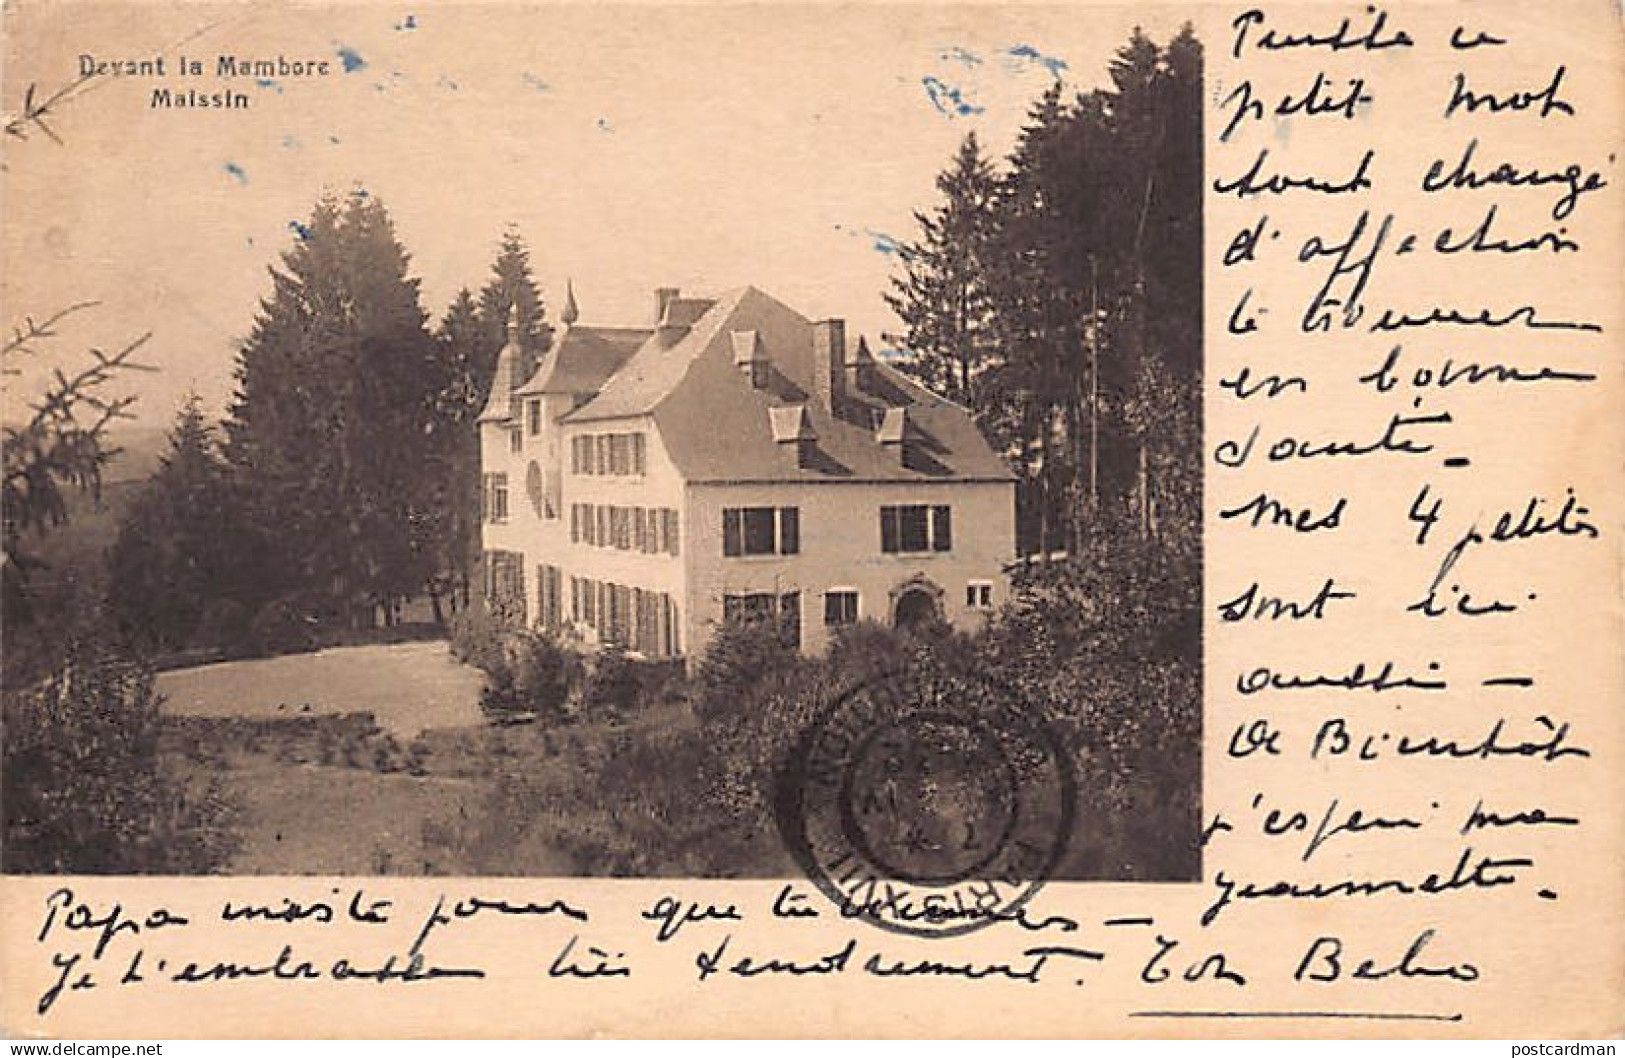 Devant la Mambore
Maissin
Puisse ce
petit mot
tout changé
d'affection
te trouver
en bonne
santé
Mes 4 petits
sont ici
aussi -
A Bientôt
j'espère ma
Jeannette.
Papa insiste pour que tu viennes -
Je t'embrasse très tendrement. Ton Bebo
PARIS XVII
delcampe.net
postcardman